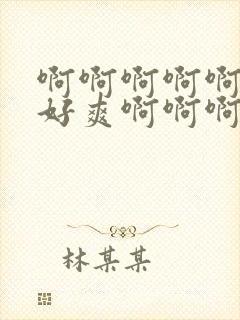 啊啊啊啊啊
好爽啊啊啊
林某某